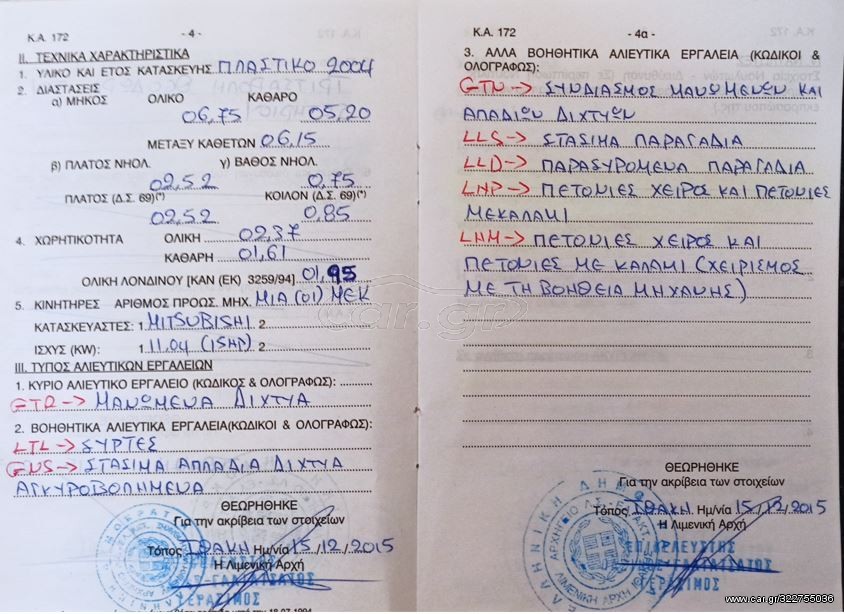 Κ.Α. 172 - 4 -
ΙΙ. ΤΕΧΝΙΚΑ ΧΑΡΑΚΤΗΡΙΣΤΙΚΑ
1. ΥΛΙΚΟ ΚΑΙ ΕΤΟΣ ΚΑΤΑΣΚΕΥΗΣ ΠΛΑΣΤΙΚΟ 2004
2. ΔΙΑΣΤΑΣΕΙΣ
α) ΜΗΚΟΣ ΟΛΙΚΟ ΚΑΘΑΡΟ
06,75 05,20
ΜΕΤΑΞΥ ΚΑΘΕΤΩΝ 06,15
β) ΠΛΑΤΟΣ ΝΗΟΛ. γ) ΒΑΘΟΣ ΝΗΟΛ.
02,52 0,75
ΠΛΑΤΟΣ (Δ.Σ. 69)(*) ΚΟΙΛΟΝ (Δ.Σ. 69)(*)
02,52 0,85
4. ΧΩΡΗΤΙΚΟΤΗΤΑ ΟΛΙΚΗ 02,37
ΚΑΘΑΡΗ 01,61
ΟΛΙΚΗ ΛΟΝΔΙΝΟΥ [ΚΑΝ (ΕΚ) 3259/94] 01,95
5. ΚΙΝΗΤΗΡΕΣ ΑΡΙΘΜΟΣ ΠΡΟΩΣ. ΜΗΧ. ΜΙΑ (01) ΜΕΚ
ΚΑΤΑΣΚΕΥΑΣΤΕΣ: 1 MITSUBISHI 2
ΙΣΧΥΣ (KW): 1 11.04 (15HP) 2
ΙΙΙ. ΤΥΠΟΣ ΑΛΙΕΥΤΙΚΩΝ ΕΡΓΑΛΕΙΩΝ
1. ΚΥΡΙΟ ΑΛΙΕΥΤΙΚΟ ΕΡΓΑΛΕΙΟ (ΚΩΔΙΚΟΣ & ΟΛΟΓΡΑΦΩΣ):
GTR -> ΜΑΝΩΜΕΝΑ ΔΙΧΤΥΑ
2. ΒΟΗΘΗΤΙΚΑ ΑΛΙΕΥΤΙΚΑ ΕΡΓΑΛΕΙΑ(ΚΩΔΙΚΟΙ & ΟΛΟΓΡΑΦΩΣ):
LTL -> ΣΥΡΤΕΣ
GNS -> ΣΤΑΣΙΜΑ ΑΠΛΑΔΙΑ ΔΙΧΤΥΑ
ΑΓΚΥΡΟΒΟΛΗΜΕΝΑ
ΘΕΩΡΗΘΗΚΕ
Για την ακρίβεια των στοιχείων
Τόπος ΙΘΑΚΗ Ημ/νία 15/12/2015
Η Λιμενική Αρχή
ΓΕΡΑΣΙΜΟΣ
Κ.Α. 172 - 4α -
3. ΑΛΛΑ ΒΟΗΘΗΤΙΚΑ ΑΛΙΕΥΤΙΚΑ ΕΡΓΑΛΕΙΑ (ΚΩΔΙΚΟΙ &
ΟΛΟΓΡΑΦΩΣ):
GTN -> ΣΥΝΔΙΑΣΜΟΣ ΜΑΝΩΜΕΝΩΝ ΚΑΙ
ΑΠΛΑΔΙΩΝ ΔΙΧΤΥΩΝ
LLS -> ΣΤΑΣΙΜΑ ΠΑΡΑΓΑΔΙΑ
LLD -> ΠΑΡΑΣΥΡΟΜΕΝΑ ΠΑΡΑΓΑΔΙΑ
LHP -> ΠΕΤΟΝΙΕΣ ΧΕΙΡΟΣ ΚΑΙ ΠΕΤΟΝΙΕΣ
ΜΕ ΚΑΛΑΜΙ
LHM -> ΠΕΤΟΝΙΕΣ ΧΕΙΡΟΣ ΚΑΙ
ΠΕΤΟΝΙΕΣ ΜΕ ΚΑΛΑΜΙ (ΧΕΙΡΙΣΜΟΣ
ΜΕ ΤΗ ΒΟΗΘΕΙΑ ΜΗΧΑΝΗΣ)
ΘΕΩΡΗΘΗΚΕ
Για την ακρίβεια των στοιχείων
Τόπος ΙΘΑΚΗ Ημ/νία 15/12/2015
Η Λιμενική Αρχή
ΕΠΙΚΕΛΕΥΣΤΗΣ
ΓΕΡΑΣΙΜΟΣ
car.gr
www.car.gr/322755036